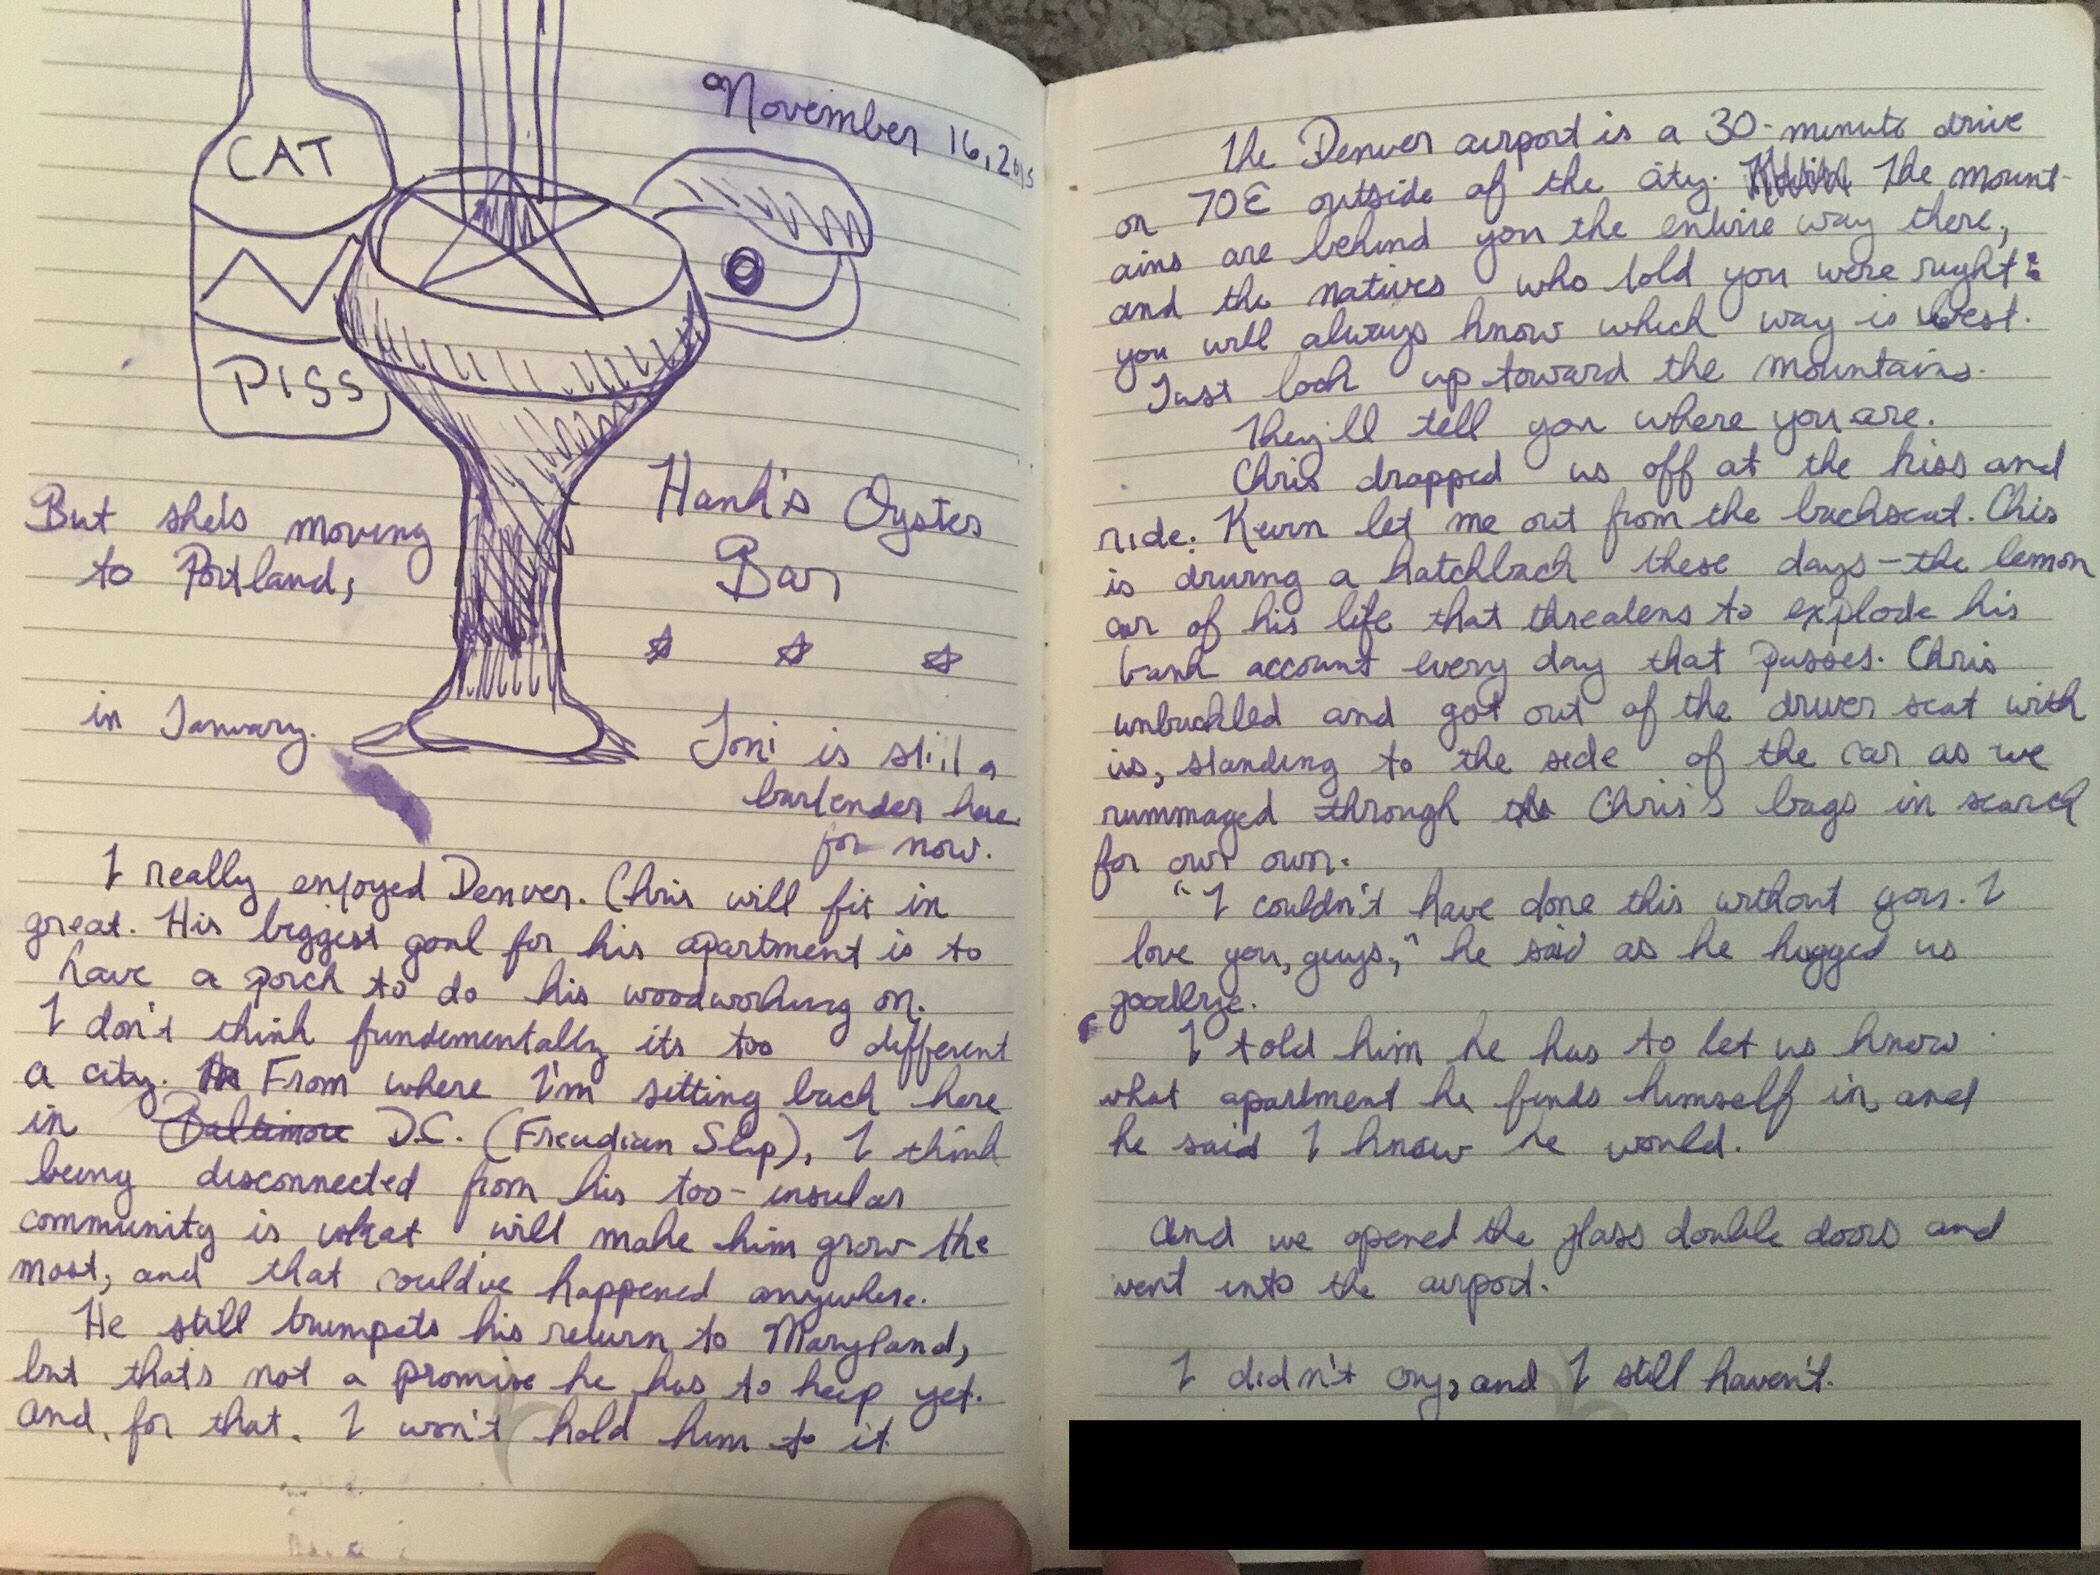 November 16, 2015
CAT
PISS
Hank's Oyster
Bar
Toni is still a
bartender here
for now.
But she's moving
to Portland,
in January.
I really enjoyed Denver. Chris will fit in
great. His biggest goal for his apartment is to
have a porch to do his woodworking on.
I don't think fundementally its too different
a city. From where I'm sitting back here
in Baltimore D.C. (Freudian Slip), I think
being disconnected from his too-insular
community is what will make him grow the
most, and that could've happened anywhere.
He still trumpets his return to Maryland,
but that's not a promise he has to keep yet.
And, for that, I won't hold him to it
The Denver airport is a 30-minute drive
on 70E outside of the city. The mount-
ains are behind you the entire way there,
and the natives who told you were right:
you will always know which way is West.
Just look up toward the mountains.
They'll tell you where you are.
Chris dropped us off at the kiss and
ride. Kevin let me out from the backseat. Chis
is driving a hatchback these days – the lemon
car of his life that threatens to explode his
bank account every day that passes. Chris
unbuckled and got out of the driver seat with
us, standing to the side of the car as we
rummaged through Chris's bags in search
for our own.
"I couldn't have done this without you. I
love you, guys," he said as he hugged us
goodbye.
I told him he has to let us know
what apartment he finds himself in, and
he said I know he would.
And we opened the glass double doors and
went into the airport.
I didn't cry, and I still haven't.